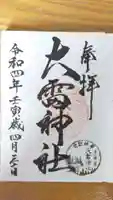 奉拝
大雷神社
令和四年壬寅歳四月三日